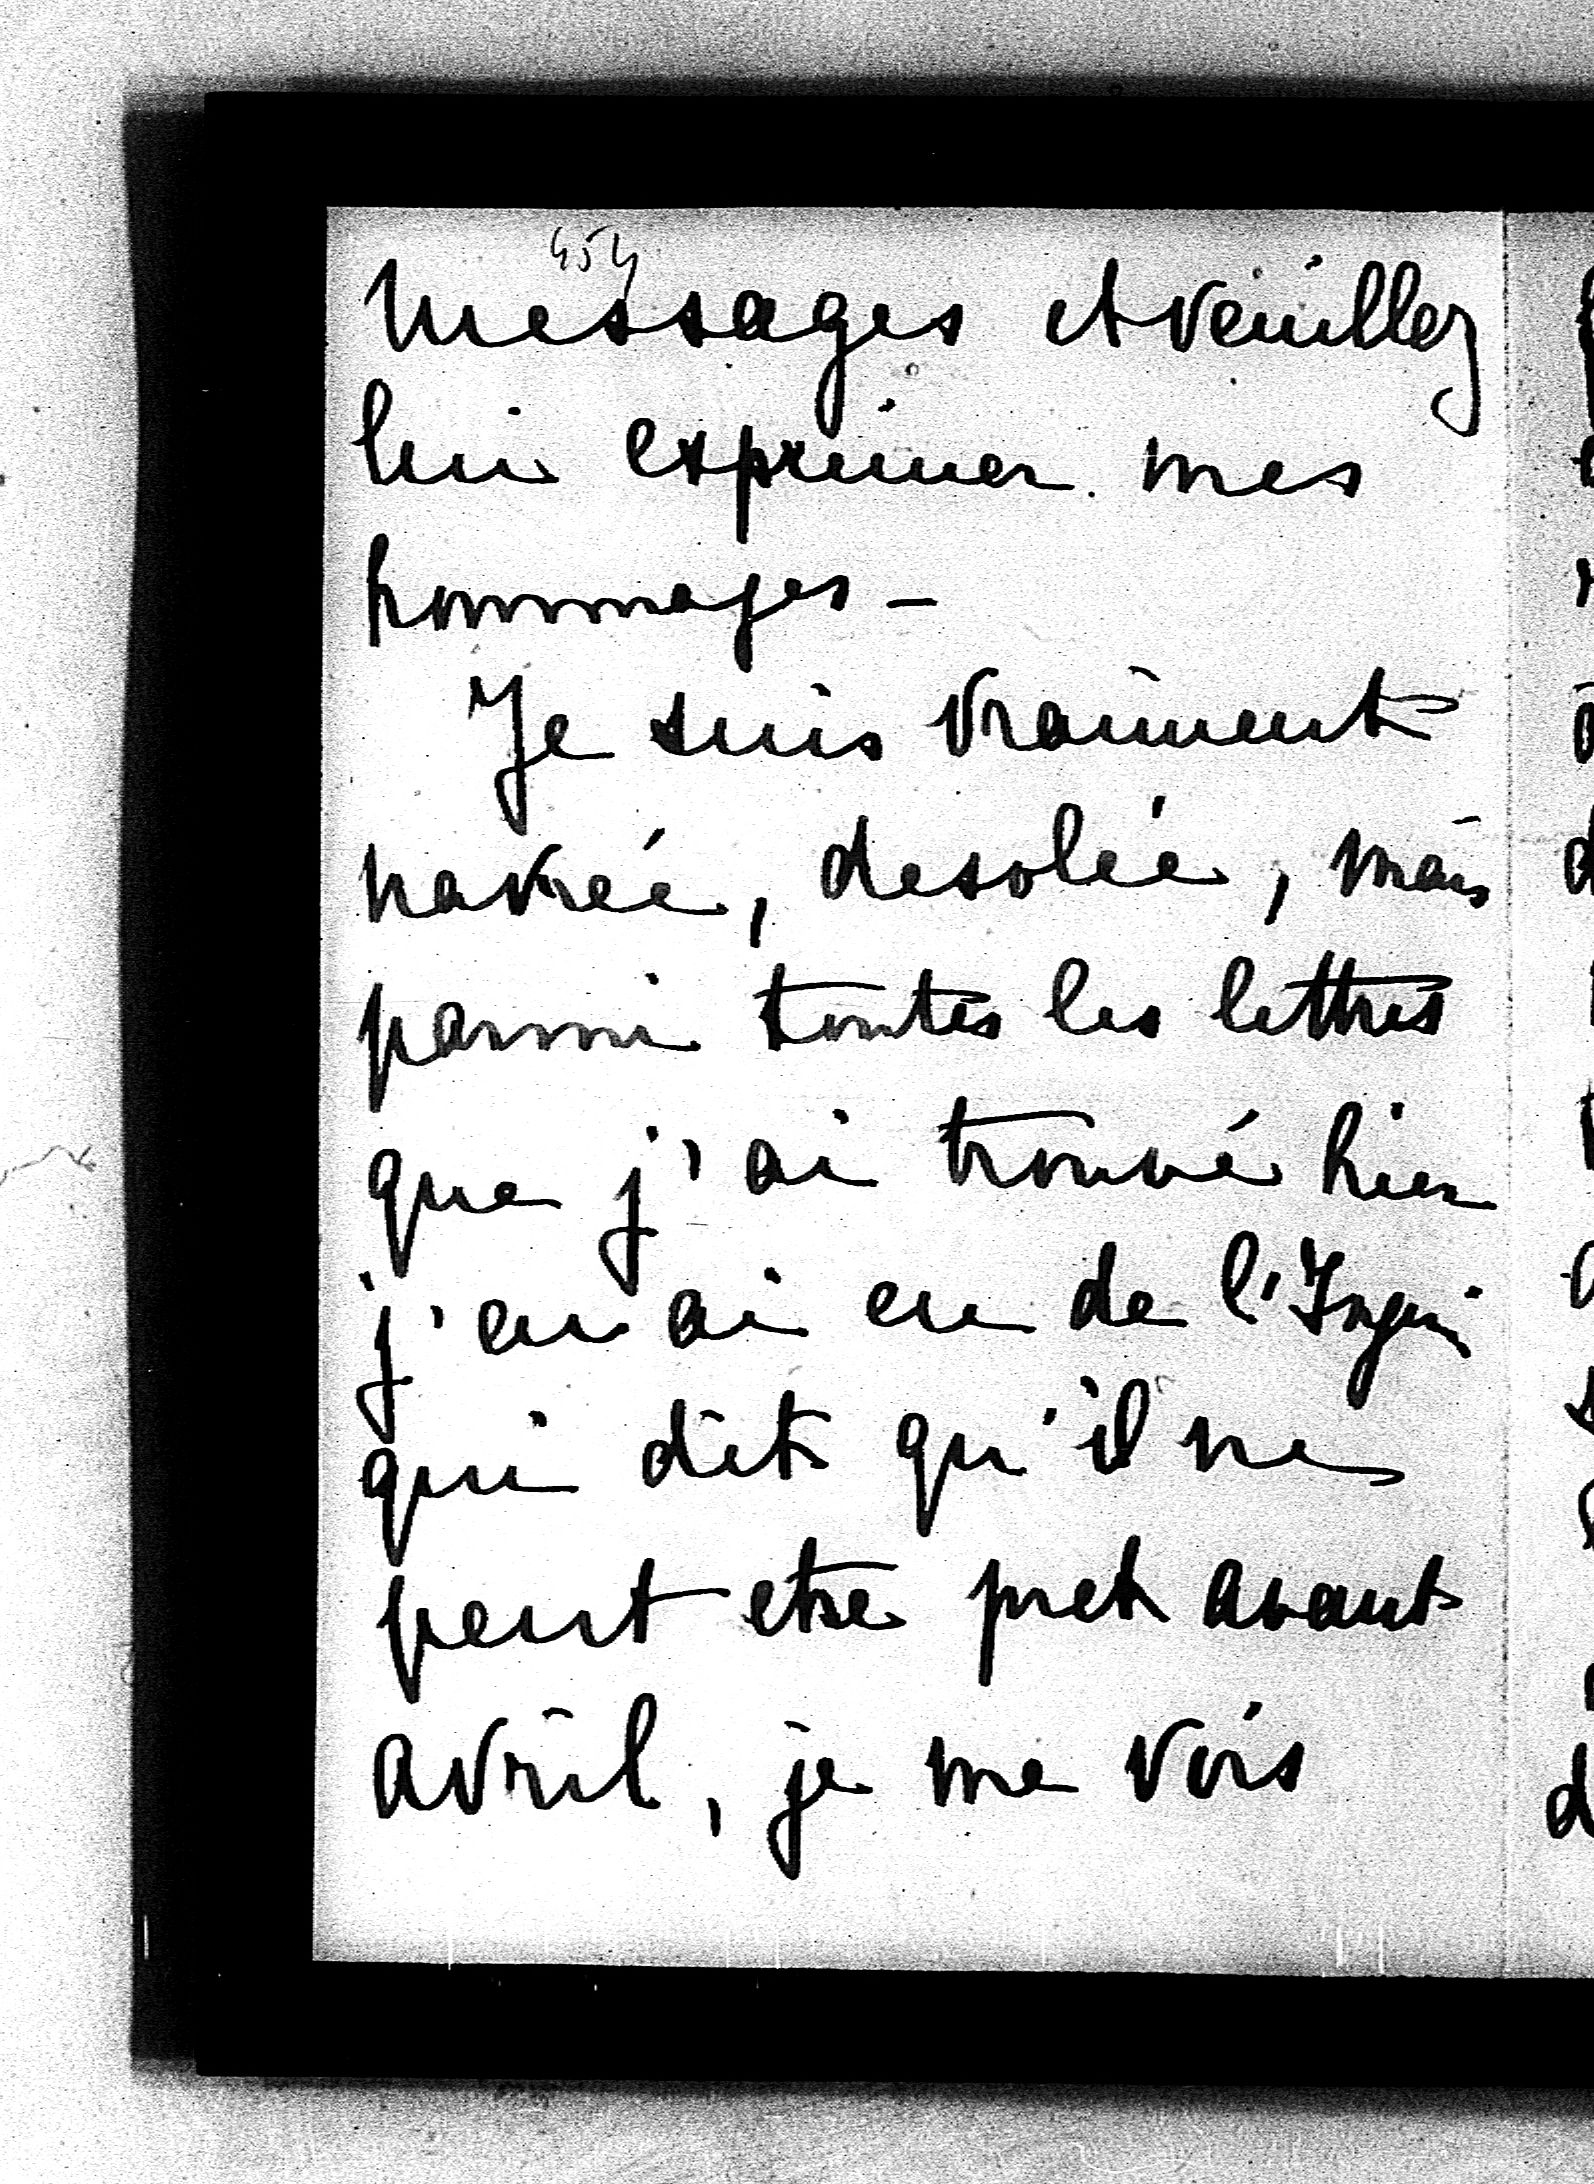 454
messages et veuillez
lui exprimer mes
hommages -
Je suis vraiment
navrée, desolée, mais
parmi toutes les lettres
que j'ai trouvé hier
j'en ai eu de l'
qui dit qu'il ne
peut etre pret avant
avril, je me vois